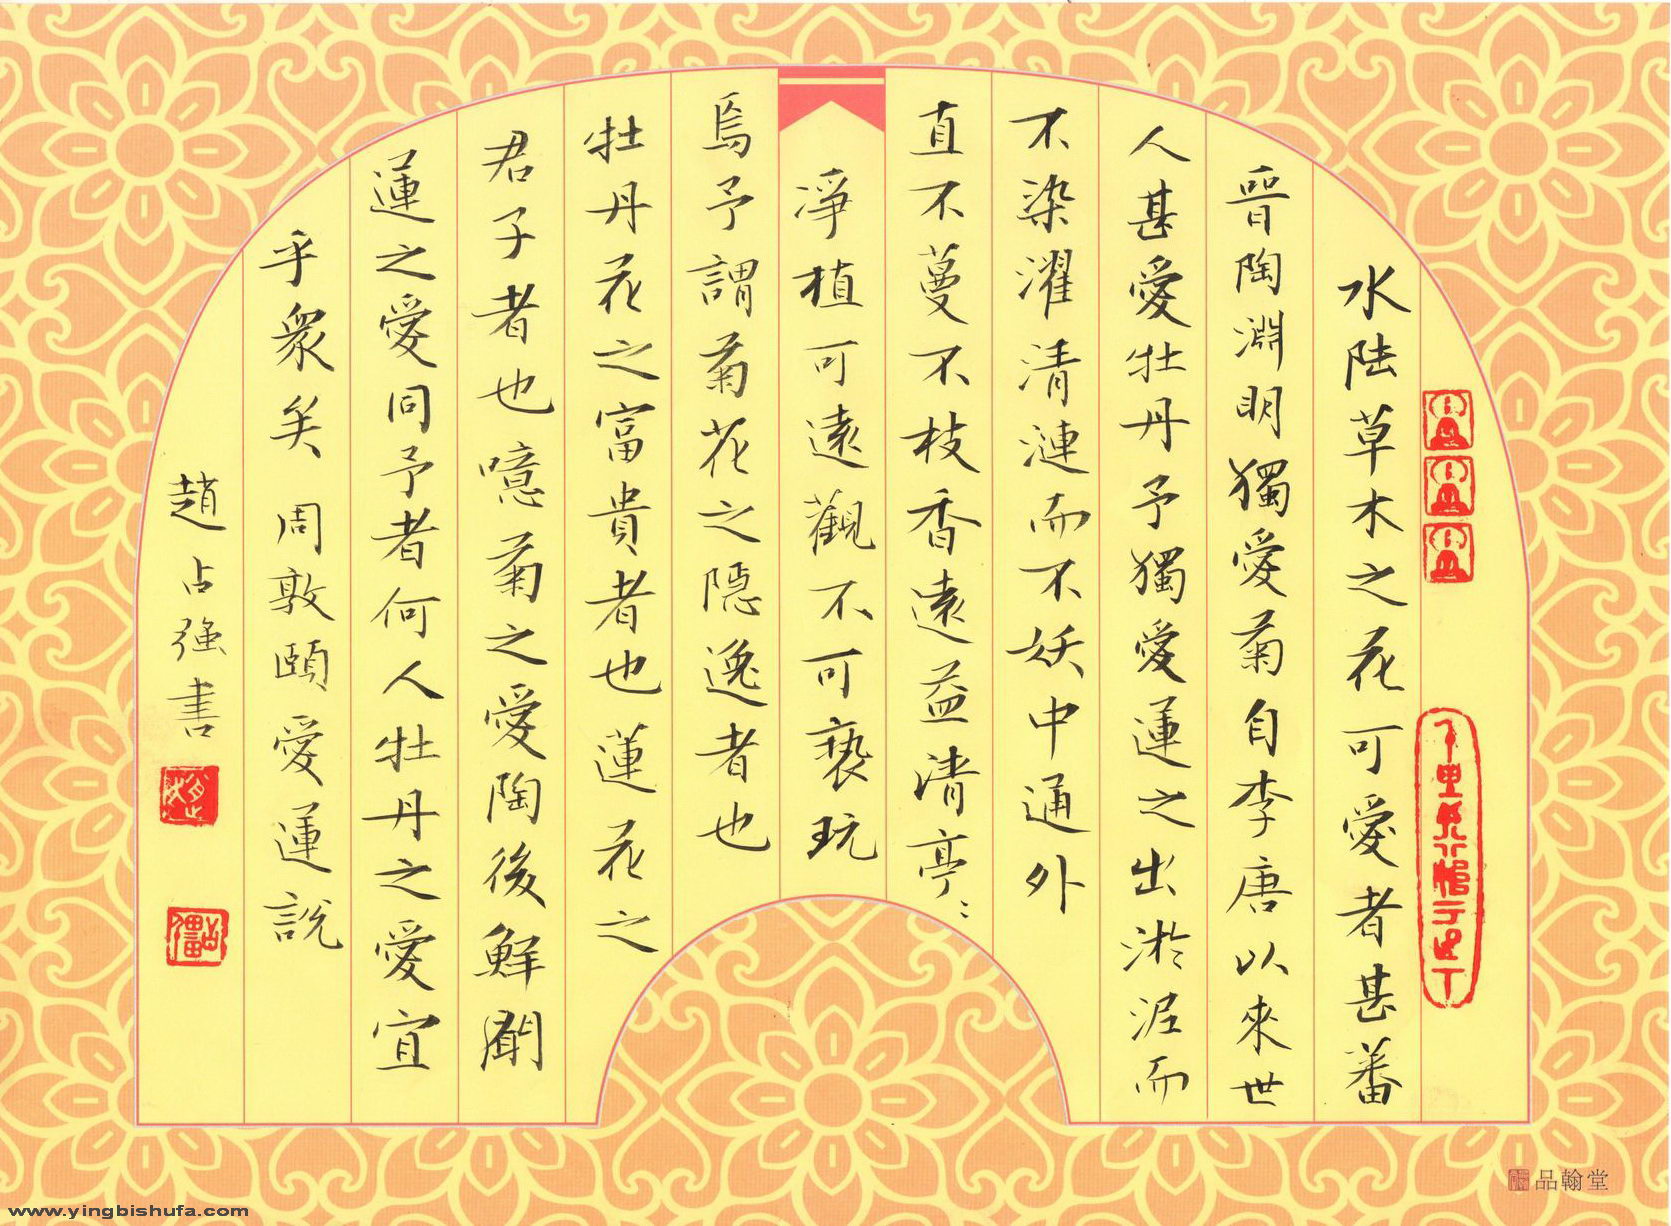 水陆草木之花可愛者甚蕃
晉陶淵明獨愛菊自李唐以來世
人甚愛牡丹予獨愛蓮之出淤泥而
不染濯清漣而不妖中通外
直不蔓不枝香遠益清亭〻
淨植可遠觀不可褻玩
焉予謂菊花之隐逸者也
牡丹花之富貴者也蓮花之
君子者也噫菊之愛陶後鮮聞
蓮之愛同予者何人牡丹之愛宜
乎衆矣 周敦頤愛蓮説
趙占强書
品翰堂
www.yingbishufa.com